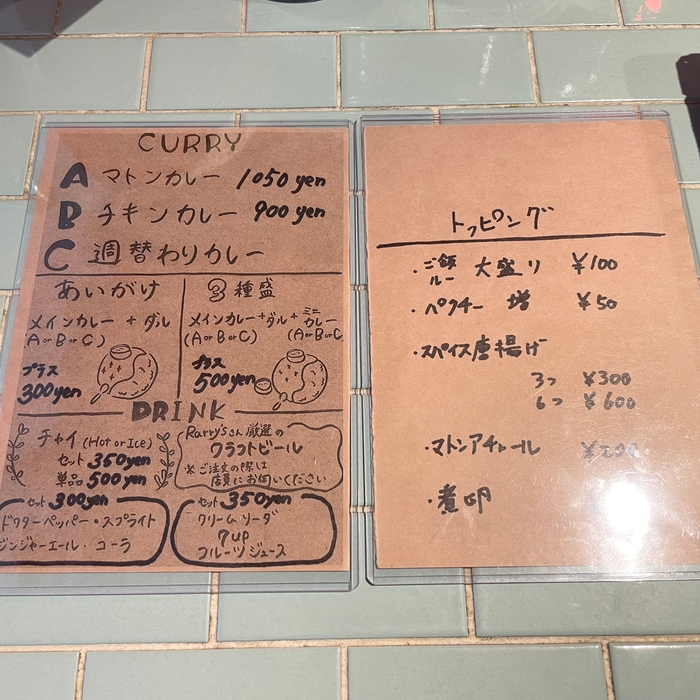 CURRY
A マトンカレー 1050 yen
B チキンカレー 900 yen
C 週替わりカレー
あいがけ
メインカレー + ダル
(A or B or C)
プラス
300yen
③種盛
メインカレー+ダル+ミニカレー
(A or B or C) (A or B or C)
プラス
500yen
DRINK
チャイ (Hot or Ice)
セット 350yen
単品 500yen
Rarry'sさん厳選の
クラフトビール
※ご注文の際は
店員にお伺いください
セット 300yen
ドクターペッパー・スプライト
ジンジャーエール・コーラ
セット 350yen
クリームソーダ
7up
フルーツジュース
トッピング
・ご飯 ルー 大盛り ¥100
・パクチー 増 ¥50
・スパイス唐揚げ
3つ ¥300
6つ ¥600
・マトンアチャール ¥200
・煮卵